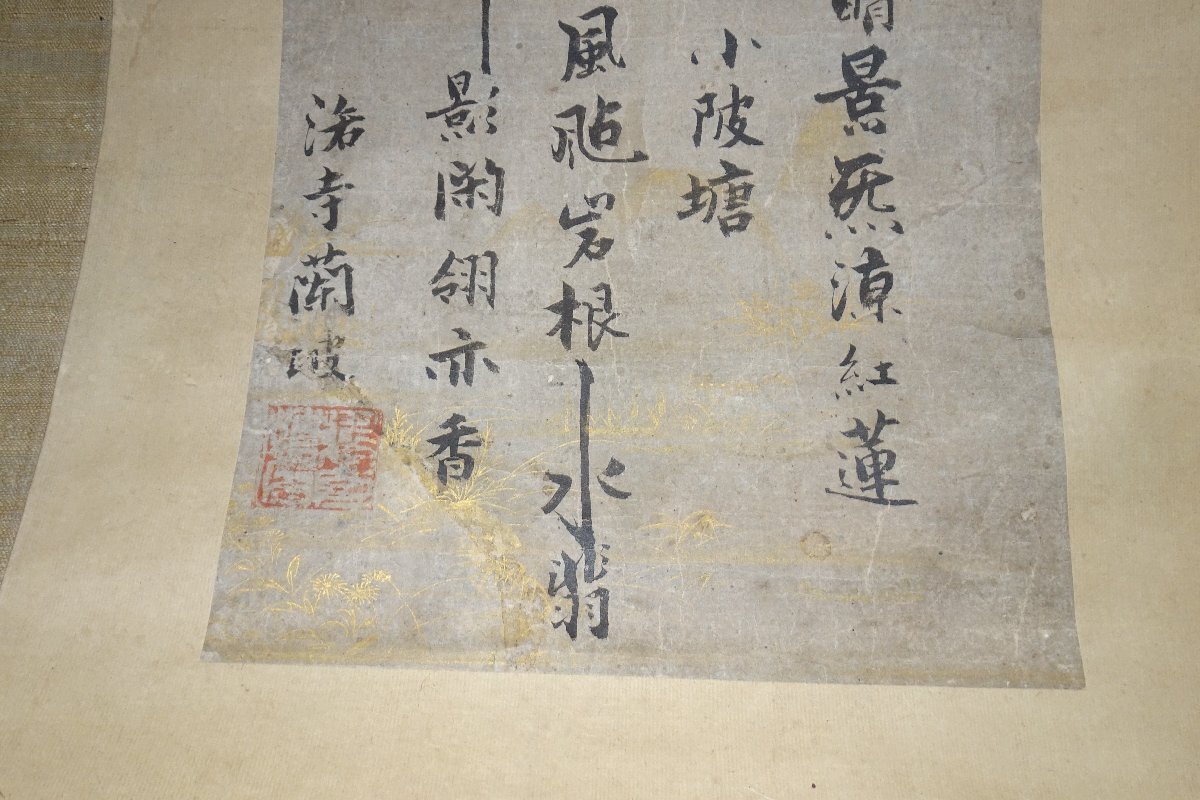 景炁涼紅蓮
小陂塘
風颭岩根水翡
影閑翎亦香
寺蘭坡